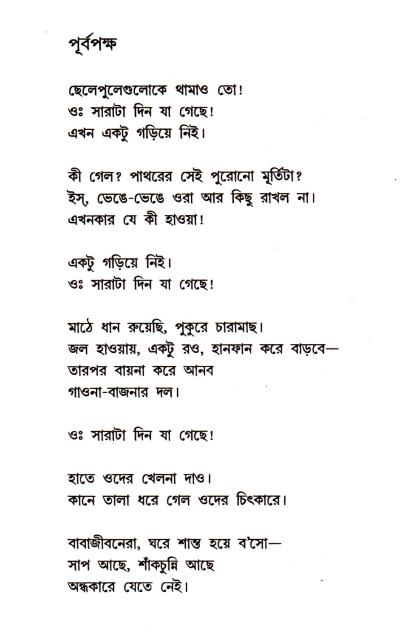 পূর্বপক্ষ
ছেলেপুলেগুলোকে থামাও তো!
ওঃ সারাটা দিন যা গেছে!
এখন একটু গড়িয়ে নিই।
কী গেল? পাথরের সেই পুরোনো মূর্তিটা?
ইস্, ভেঙে-ভেঙে ওরা আর কিছু রাখল না।
এখনকার যে কী হাওয়া!
একটু গড়িয়ে নিই।
ওঃ সারাটা দিন যা গেছে!
মাঠে ধান রুয়েছি, পুকুরে চারামাছ।
জল হাওয়ায়, একটু রও, হানফান করে বাড়বে—
তারপর বায়না করে আনব
গাওনা-বাজনার দল।
ওঃ সারাটা দিন যা গেছে!
হাতে ওদের খেলনা দাও।
কানে তালা ধরে গেল ওদের চিৎকারে।
বাবাজীবনেরা, ঘরে শান্ত হয়ে ব'সো—
সাপ আছে, শাঁকচুন্নি আছে
অন্ধকারে যেতে নেই।